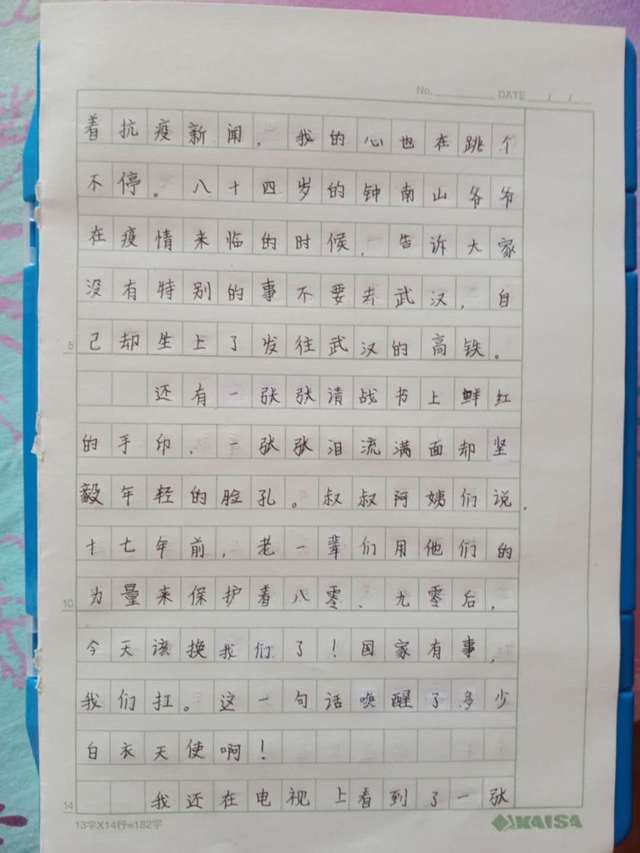 No. DATE / /
着抗疫新闻，我的心也在跳个
不停。八十四岁的钟南山爷爷
在疫情来临的时候，告诉大家
没有特别的事不要去武汉，自
己却坐上了发往武汉的高铁。
5
还有一张张请战书上鲜红
的手印、一张张泪流满面却坚
毅年轻的脸孔。叔叔阿姨们说，
十七年前，老一辈们用他们的
力量来保护着八零、九零后，
10
今天该换我们了！国家有事，
我们扛。这一句话唤醒了多少
白衣天使啊！
我还在电视上看到了一张
14
13字X14行=182字
KAISA